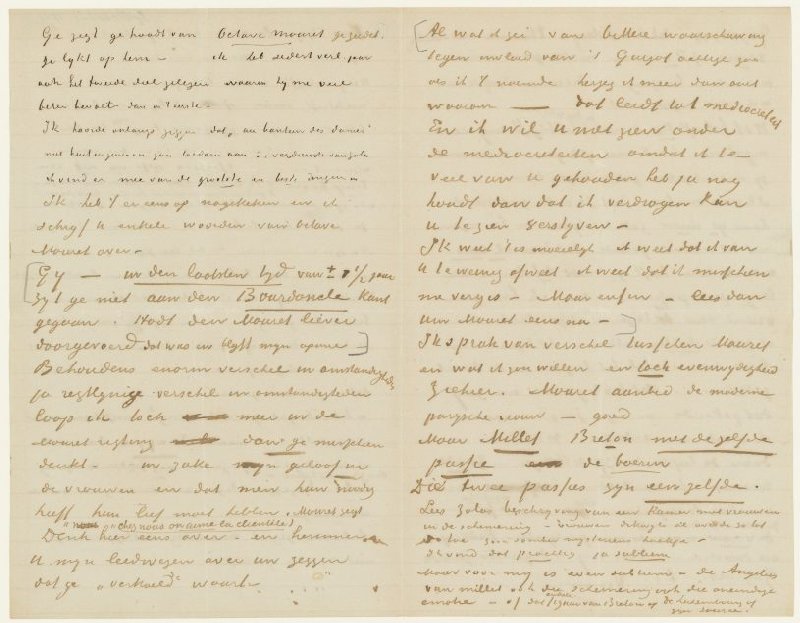 Ge zegt ge houdt van Octave Mouret ge zieder
ge lykt op hem – ik heb sedert verl. jaar
ook het tweede deel gelezen waarin hy me veel
beter bevalt dan in 't eerste.
Ik hoorde onlangs zeggen dat „au bonheur des dames"
niet veel zou aan Z. verdiensten
Ik vind er mee van de grootste en beste dingen in
Ik heb 't er eens op nagekeken en ik
schryf u enkele woorden van Octave
Mouret over –
Gy – in den laatsten tyd van ± 1 1/2 jaar
zyt ge niet aan den Bourdoncle kant
gegaan. Hadt den Mouret liever
doorgevoerd dat was en blyft myn opinie –
Behoudens enorm verschil in omstandigheden
ja regtlynige verschil in omstandigheden
loop ik toch meer in de
Mouret rigting dan ge misschien
denkt – in zake myn geloof in
de vrouwen en dat men haar noodig
heeft, haar lief moet hebben. Mouret zegt
„chez nous on aime la clientèle)
Denk hier eens over – en herinner u
u myn leedwezen over uw zeggen
dat ge „verkoeld" waart –
Al wat ik zei van bittere waarschuwing
tegen invloed van 't Guizot achtige zoo
als ik 't noemde herzeg ik meer dan ooit
waarom – dat leidt tot mediocriteit
En ik wil u niet zien onder
de mediocriteiten omdat ik te
veel van u gehouden heb ja nog
houdt dan dat ik verdragen kan
u te zien verstyven –
Ik weet 't is moeielyk ik weet dat ik van
u te weinig afweet ik weet dat ik misschien
me vergis – Maar enfin – lees dan
uw Mouret eens na –
Ik sprak van verschil tusschen Mouret
en wat ik zou willen en toch evenwydigheid
Ziehier. Mouret aanbid de moderne
parysche vrouw – goed
Maar Millet Breton met dezelfde
passie de boerin
Die twee passies zyn een zelfde.
Lees Zolas beschryving van een kamer met vrouwen
in de schemering – vrouwen dikwyls de derde al tot
Ik vind dat prachtig ja subliem
Maar voor my is even subliem – de Angelus
van Millet ook die schemering ook die oneindige
emotie – of dat enkele figuur van Breton of de Luxembourg of
zyn source.